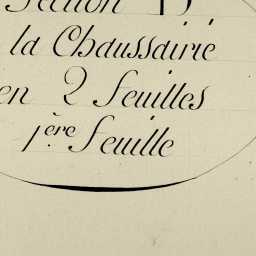 Section D
la Chaussairie
en 2 feuilles
1ère feuille